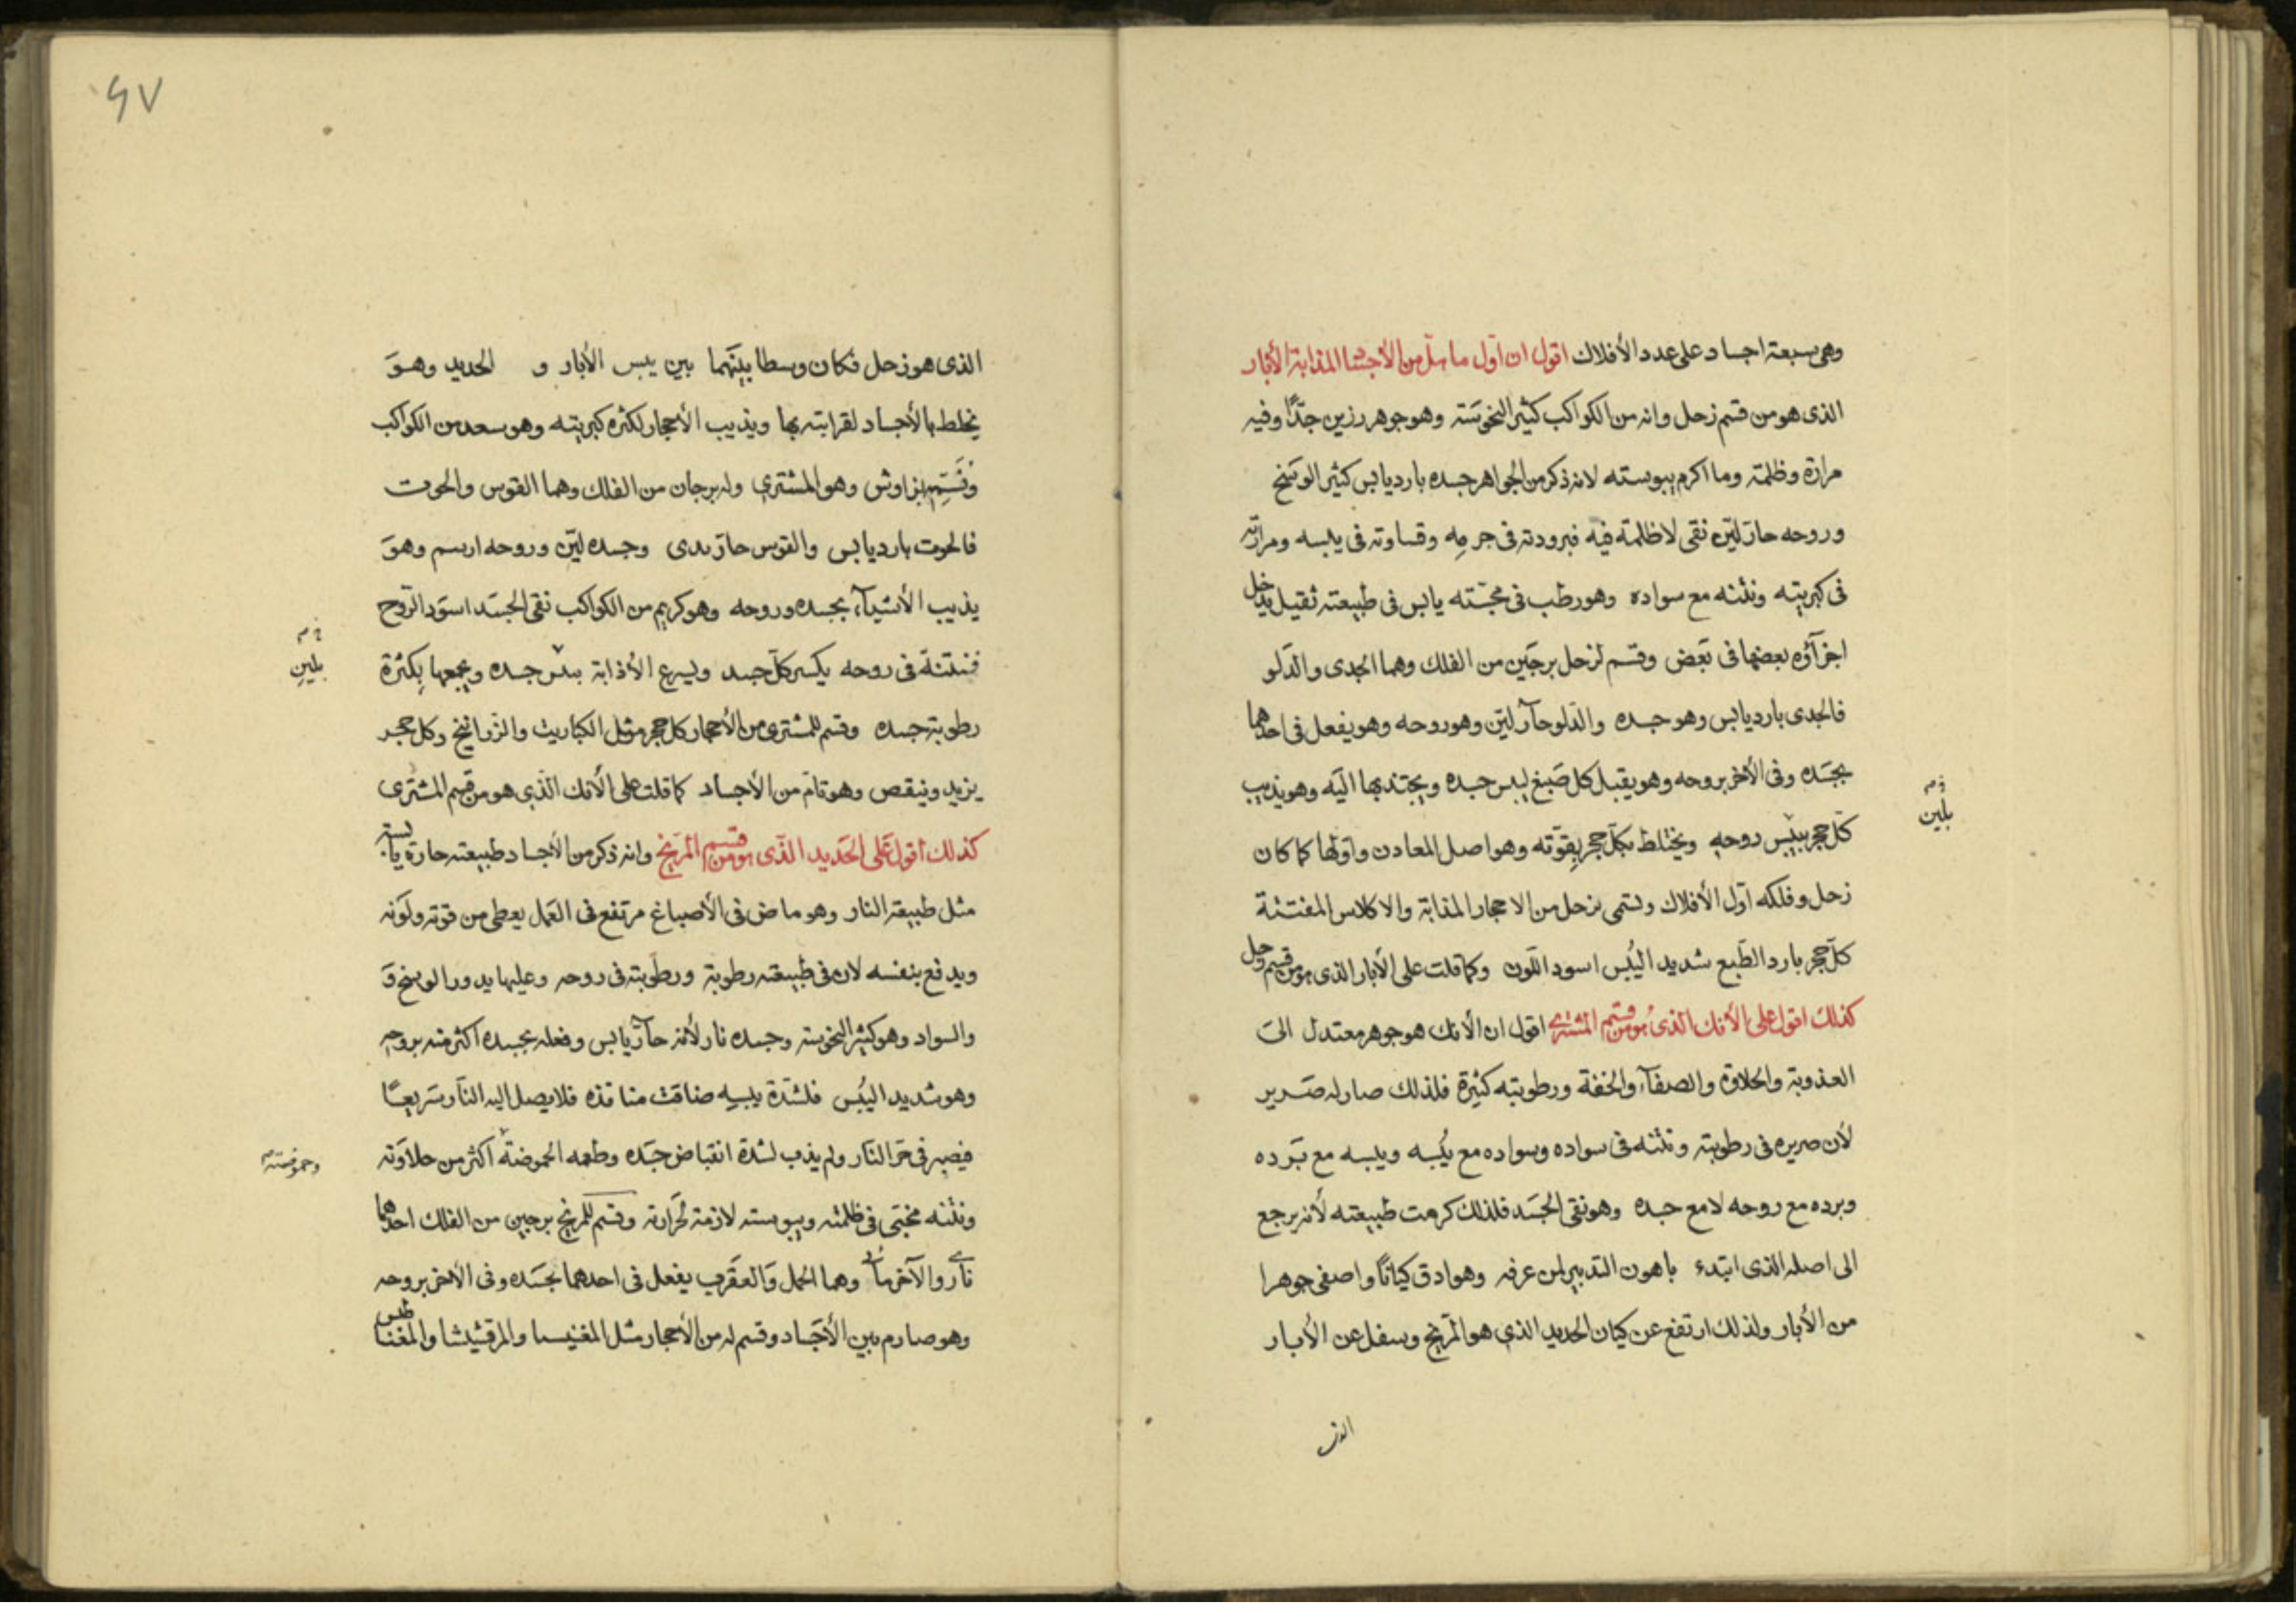 وهى سبعة اجساد على عدد الأفلاك اقول ان اول ما من الأجساد المذابة الأبار
الذى هو من قسم زحل وانه من الكواكب كثير النحوسته وهو جوهر رزين جدّا وفيه
مرارة وظلمة وما اكرم يبوسته لانه ذكر من الجواهر جسده بارد يابس كثير الوسخ
وروحه حار ليّن نقى لا ظلمة فيه فبرودته فى جرمه وقساوته فى يبسه ومرارته
فى كبريته ونتنه مع سواده وهو رطب فى مجسّته يابس فى طبيعته ثقيل يدخل
اجزآؤه بعضها فى بعض وقسم لزحل برجين من الفلك وهما الجدى والدلو
فالجدى بارد يابس وهو جسده والدلو حآر ليّن وهو روحه وهو يفعل فى احدهما
بجسده وفى الأخر بروحه وهو يقبل كل صبغ ليبس جسده ويجتذبها اليه وهو يذيب
كلّ حجر بيبس روحه ويختلط بكلّ حجر بقوّته وهو اصل المعادن واوّلها كما كان
زحل وفلكه اوّل الأفلاك وتسمى بزحل من الاحجار المذابة والاكلاس المفتتنة
كلّ حجر بارد الطّبع شديد اليُبس اسود اللّون وكما قلت على الأبار الذى هو من قسم زحل
كذلك اقول على الأنك الذى هو من قسم المشترى اقول ان الأنك هو جوهر معتدل الى
العذوبة والحلاوة والصفآء والخفة ورطوبته كثيرة فلذلك صار له صرير
لأن صريره فى رطوبته ونتنه فى سواده وسواده مع يُبسه ويبسه مع بَرده
وبرده مع روحه لا مع جسده وهو نقى الجسد فلذلك كرمت طبيعته لأنه يرجع
الى اصله الذى ابتدء باهون التدبير لمن عرفه وهو ادق كيانًا واصفى جوهرا
من الأبار ولذلك ارتفع عن كيان الحديد الذى هو المرّيخ وسفل عن الأبار
الذى
ز م
بلين
٤٧
الذى هو زحل فكان وسطا بينهما بين يبس الأبار و الحديد وهو
يخلط بالأجساد لقرابته بها ويذيب الأحجار لكثرة كبريته وهو سعد من الكواكب
بزاوش وهو المشترى وله برجان من الفلك وهما القوس والحوت
فالحوت بارد يابس والقوس حارّ ندى وجسده ليّن وروحه ارسم وهو
يذيب الأشيآء بجسده وروحه وهو كريم من الكواكب نقى الجسد اسود الرّوح
فنتنة فى روحه يكسر كلّ جسد ويسرع الأذابة بيبس جسده ويجمعها بكثرة
رطوبة جسده وقسم للمشترى من الأحجار كل حجر مثل الكباريت والزرانيخ وكل حجر
يزيد وينقص وهو تامّ من الأجساد كما قلت على الأنك الذى هو من قسم المشترى
كذلك اقول على الحديد الذى هو من قسم المرّيخ وانه ذكر من الأجساد طبيعته حارة يابسة
مثل طبيعة النار وهو ماض فى الأصباغ مرتفع فى العمل يعطى من قوته ولونه
ويدفع بنفسه لان فى طبيعته رطوبة ورطوبته فى روحه وعليها يدور الوسخ وَ
والسواد وهو كثير النحوسته وجسده نار لأنه حآرّ يابس وفعله بجسده اكثر منه بروحه
وهو شديد اليُبس فلشدّة يبسه ضاقت منافذه فلا يصل اليه النّار سريعًا
فيصبر فى حرّ النّار ولم يذب لشدّة انقباض جسده وطعمه الحموضة اكثر من حلاوته
ونتنه مختبى فى ظلمته ويبوسته لازمة لحرارته وقسم للمرّيخ برجين من الفلك احدهما
نارى والآخر مآئى وهما الحمل والعقرب يفعل فى احدهما بجسده وفى الأخر بروحه
وهو صارم بين الأجساد وقسم له من الأحجار مثل المغنيسا والمرقشيشا والمغناطيس
ز م
بلين
وحموضته م